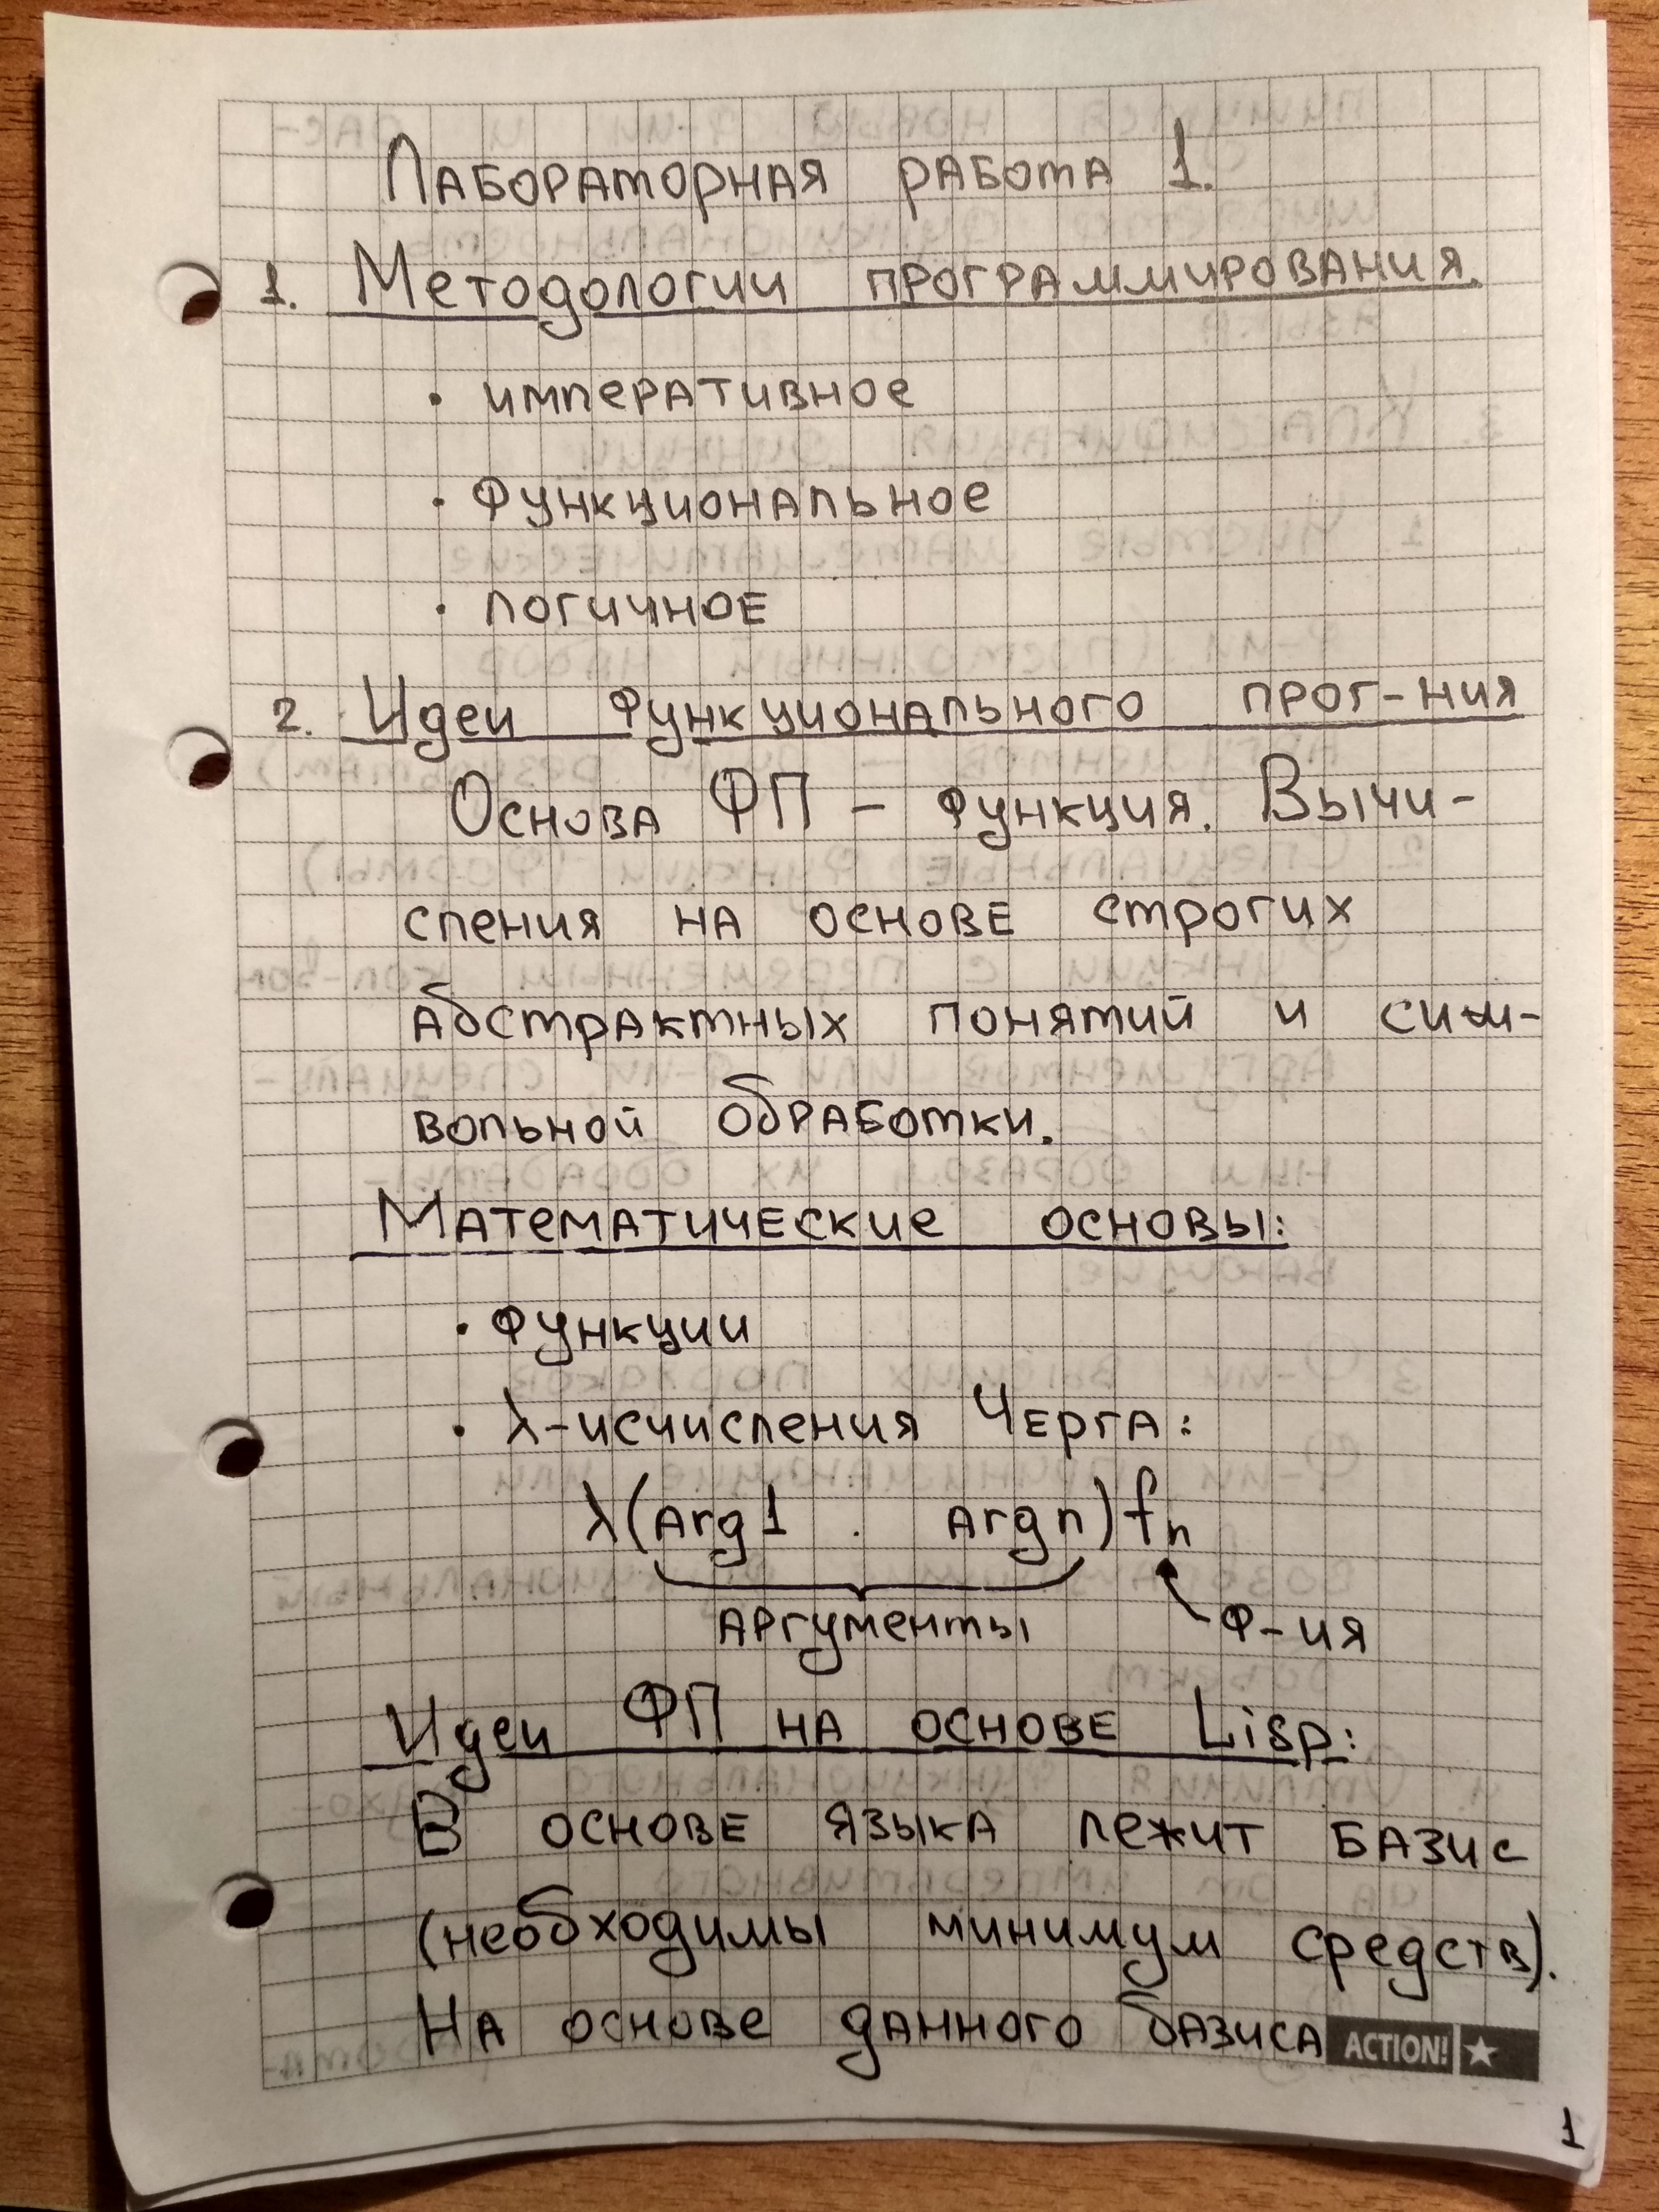 Лабораторная работа 1.
1. Методологии программирования.
• императивное
• функциональное
• логичное
2. Идеи функционального прог-ния
Основа ФП – функция. Вычи-
сления на основе строгих
абстрактных понятий и сим-
вольной обработки.
Математические основы:
• функции
• λ-исчисления Черга:
λ(Arg1 . Argn)fn
аргументы
ф-ия
Идеи ФП на основе Lisp:
В основе языка лежит базис
(необходимы минимум средств).
На основе данного базиса
ACTION! ★
1